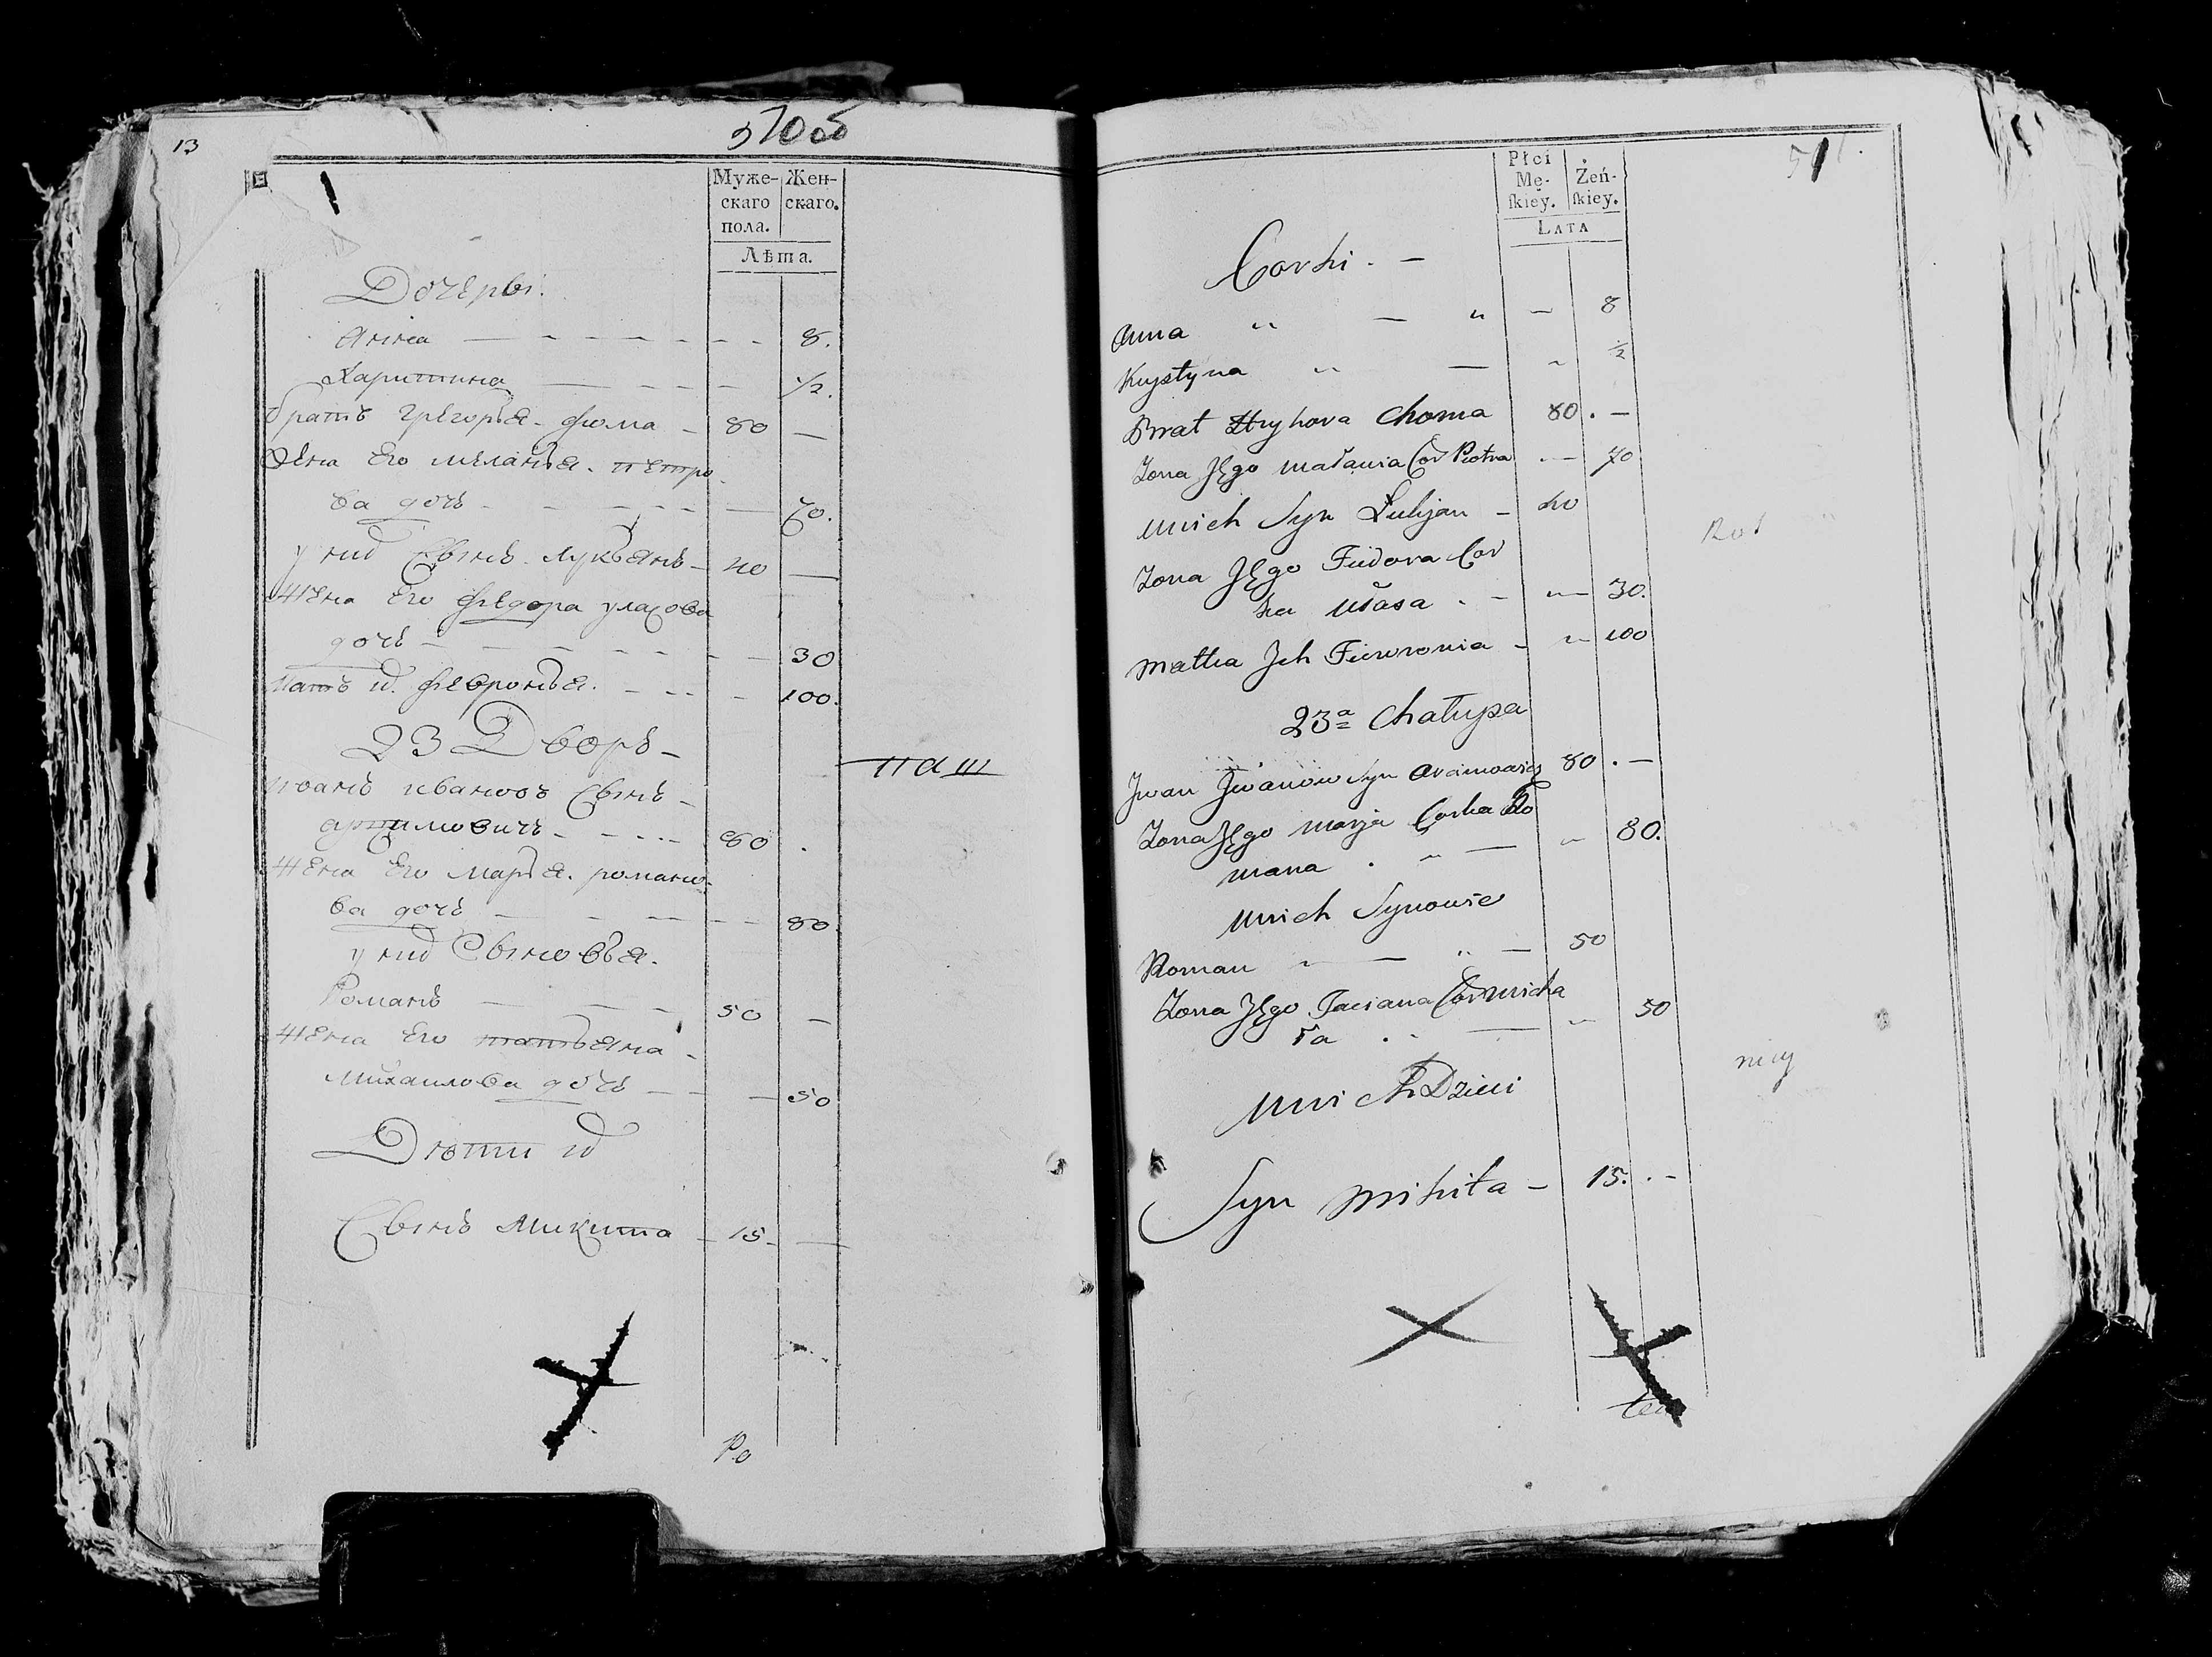 13
570 об
Муже-
скаго
пола.
Жен-
скаго.
Лѣта.
Дочеры.
Анна — 8.
Харитина — 1/2.
братъ Грегорья Фома — 80 —
жена Его Меланья Петро
ва дочь — 70.
у них Сынъ Лукьянъ — 40 —
Жена Его Федора уласова
дочь — 30
Мать их Февронья — 100.
23 Дворъ —
Иванъ Ивановъ Сынъ —
80
Жена Его Марья романо-
ва дочь — 80
у них Сыновья.
Романъ — 50 —
Жена Его татьяна
Михаилова дочь — 50
Дѣти их
Сынъ Микита — 15 —
Ро
571.
Płci
Mę-
ſkiey.
Żeń-
ſkiey.
Lata
Corki. —
Anna „ — „ — 8
Krystyna „ — 1/2
Brat Hryhora Choma 80 . —
Zona Jego Małania Cor Piotra — 70
unich Syn Łukjan — 40
Zona Jego Fiedora Cor
ka Ułasa . — — 30.
Matka Jch Fiewronia — — 100
23a Chałupa
Jwan Jwanow Syn 80 . —
Zona Jego Marja Corka Ro
mana . „ — „ 80.
unich Synowie
Roman — — „ — 50
Zona Jego Taciana Cor Micha
ła . — — 50
unich Dzieci
Syn Mikita — 15. . —